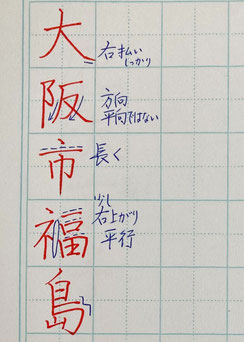 大
右払い
しっかり
阪
方向
平向ではない
市
長く
福
少し
右上がり
平行
島